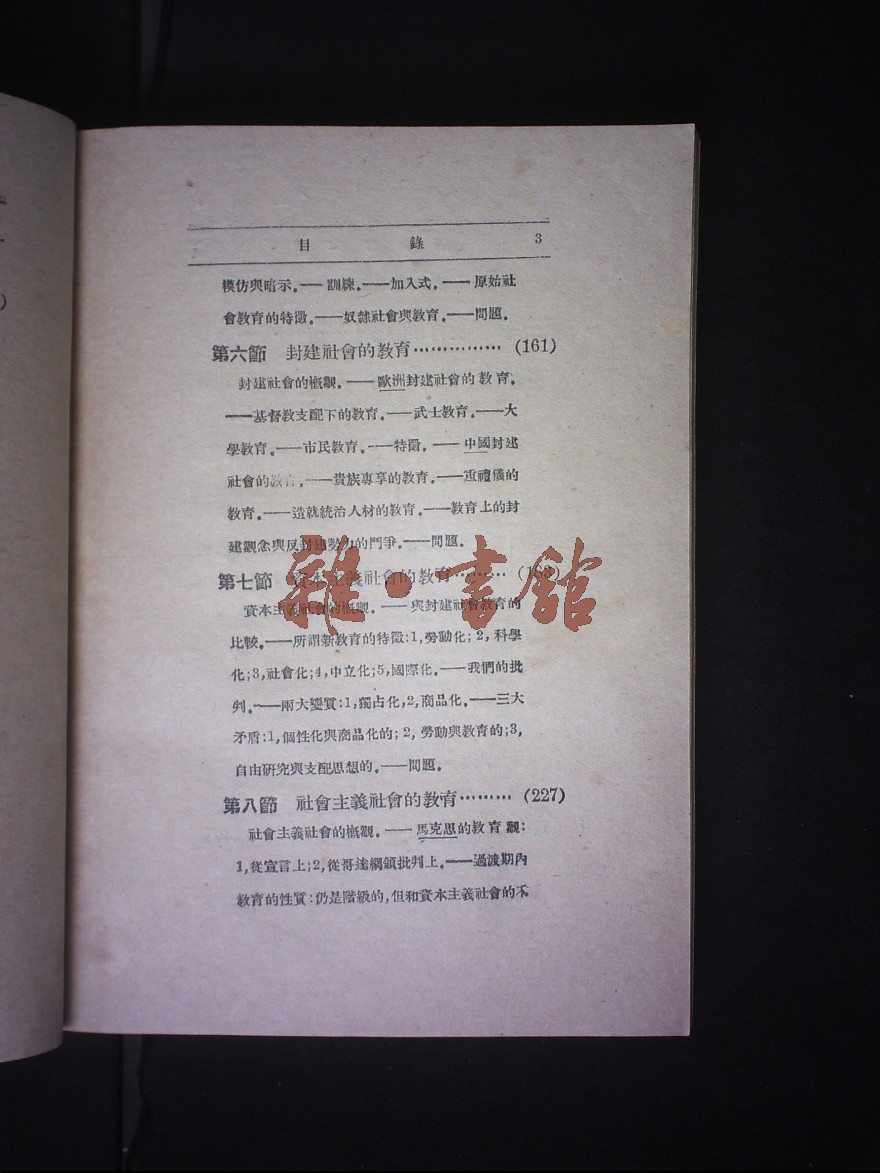 目 錄 3
模仿與暗示。——訓練。——加入式。——原始社
會教育的特徵。——奴隸社會與教育。——問題。
第六節 封建社會的教育…………… (161)
封建社會的槪觀。——歐洲封建社會的教育。
——基督教支配下的教育。——武士教育。——大
學教育。——市民教育。——特徵。——中國封建
社會的教育。——貴族專享的教育。——重禮儀的
教育。——造就統治人材的教育。——教育上的封
建觀念與反封建勢力的鬥爭。——問題。
第七節 資本主義社會的教育………
資本主義社會的槪觀。——與封建社會教育的
比較。——所謂新教育的特徵:1,勞動化;2,科學
化;3,社會化;4,中立化;5,國際化。——我們的批
判。——兩大變質:1,獨占化,2,商品化。——三大
矛盾:1,個性化與商品化的;2,勞動與教育的;3,
自由研究與支配思想的。——問題。
第八節 社會主義社會的教育……… (227)
社會主義社會的槪觀。——馬克思的教育觀:
1,從宣言上;2,從哥達綱領批判上。——過渡期內
教育的性質:仍是階級的,但和資本主義社會的不
雜·書館